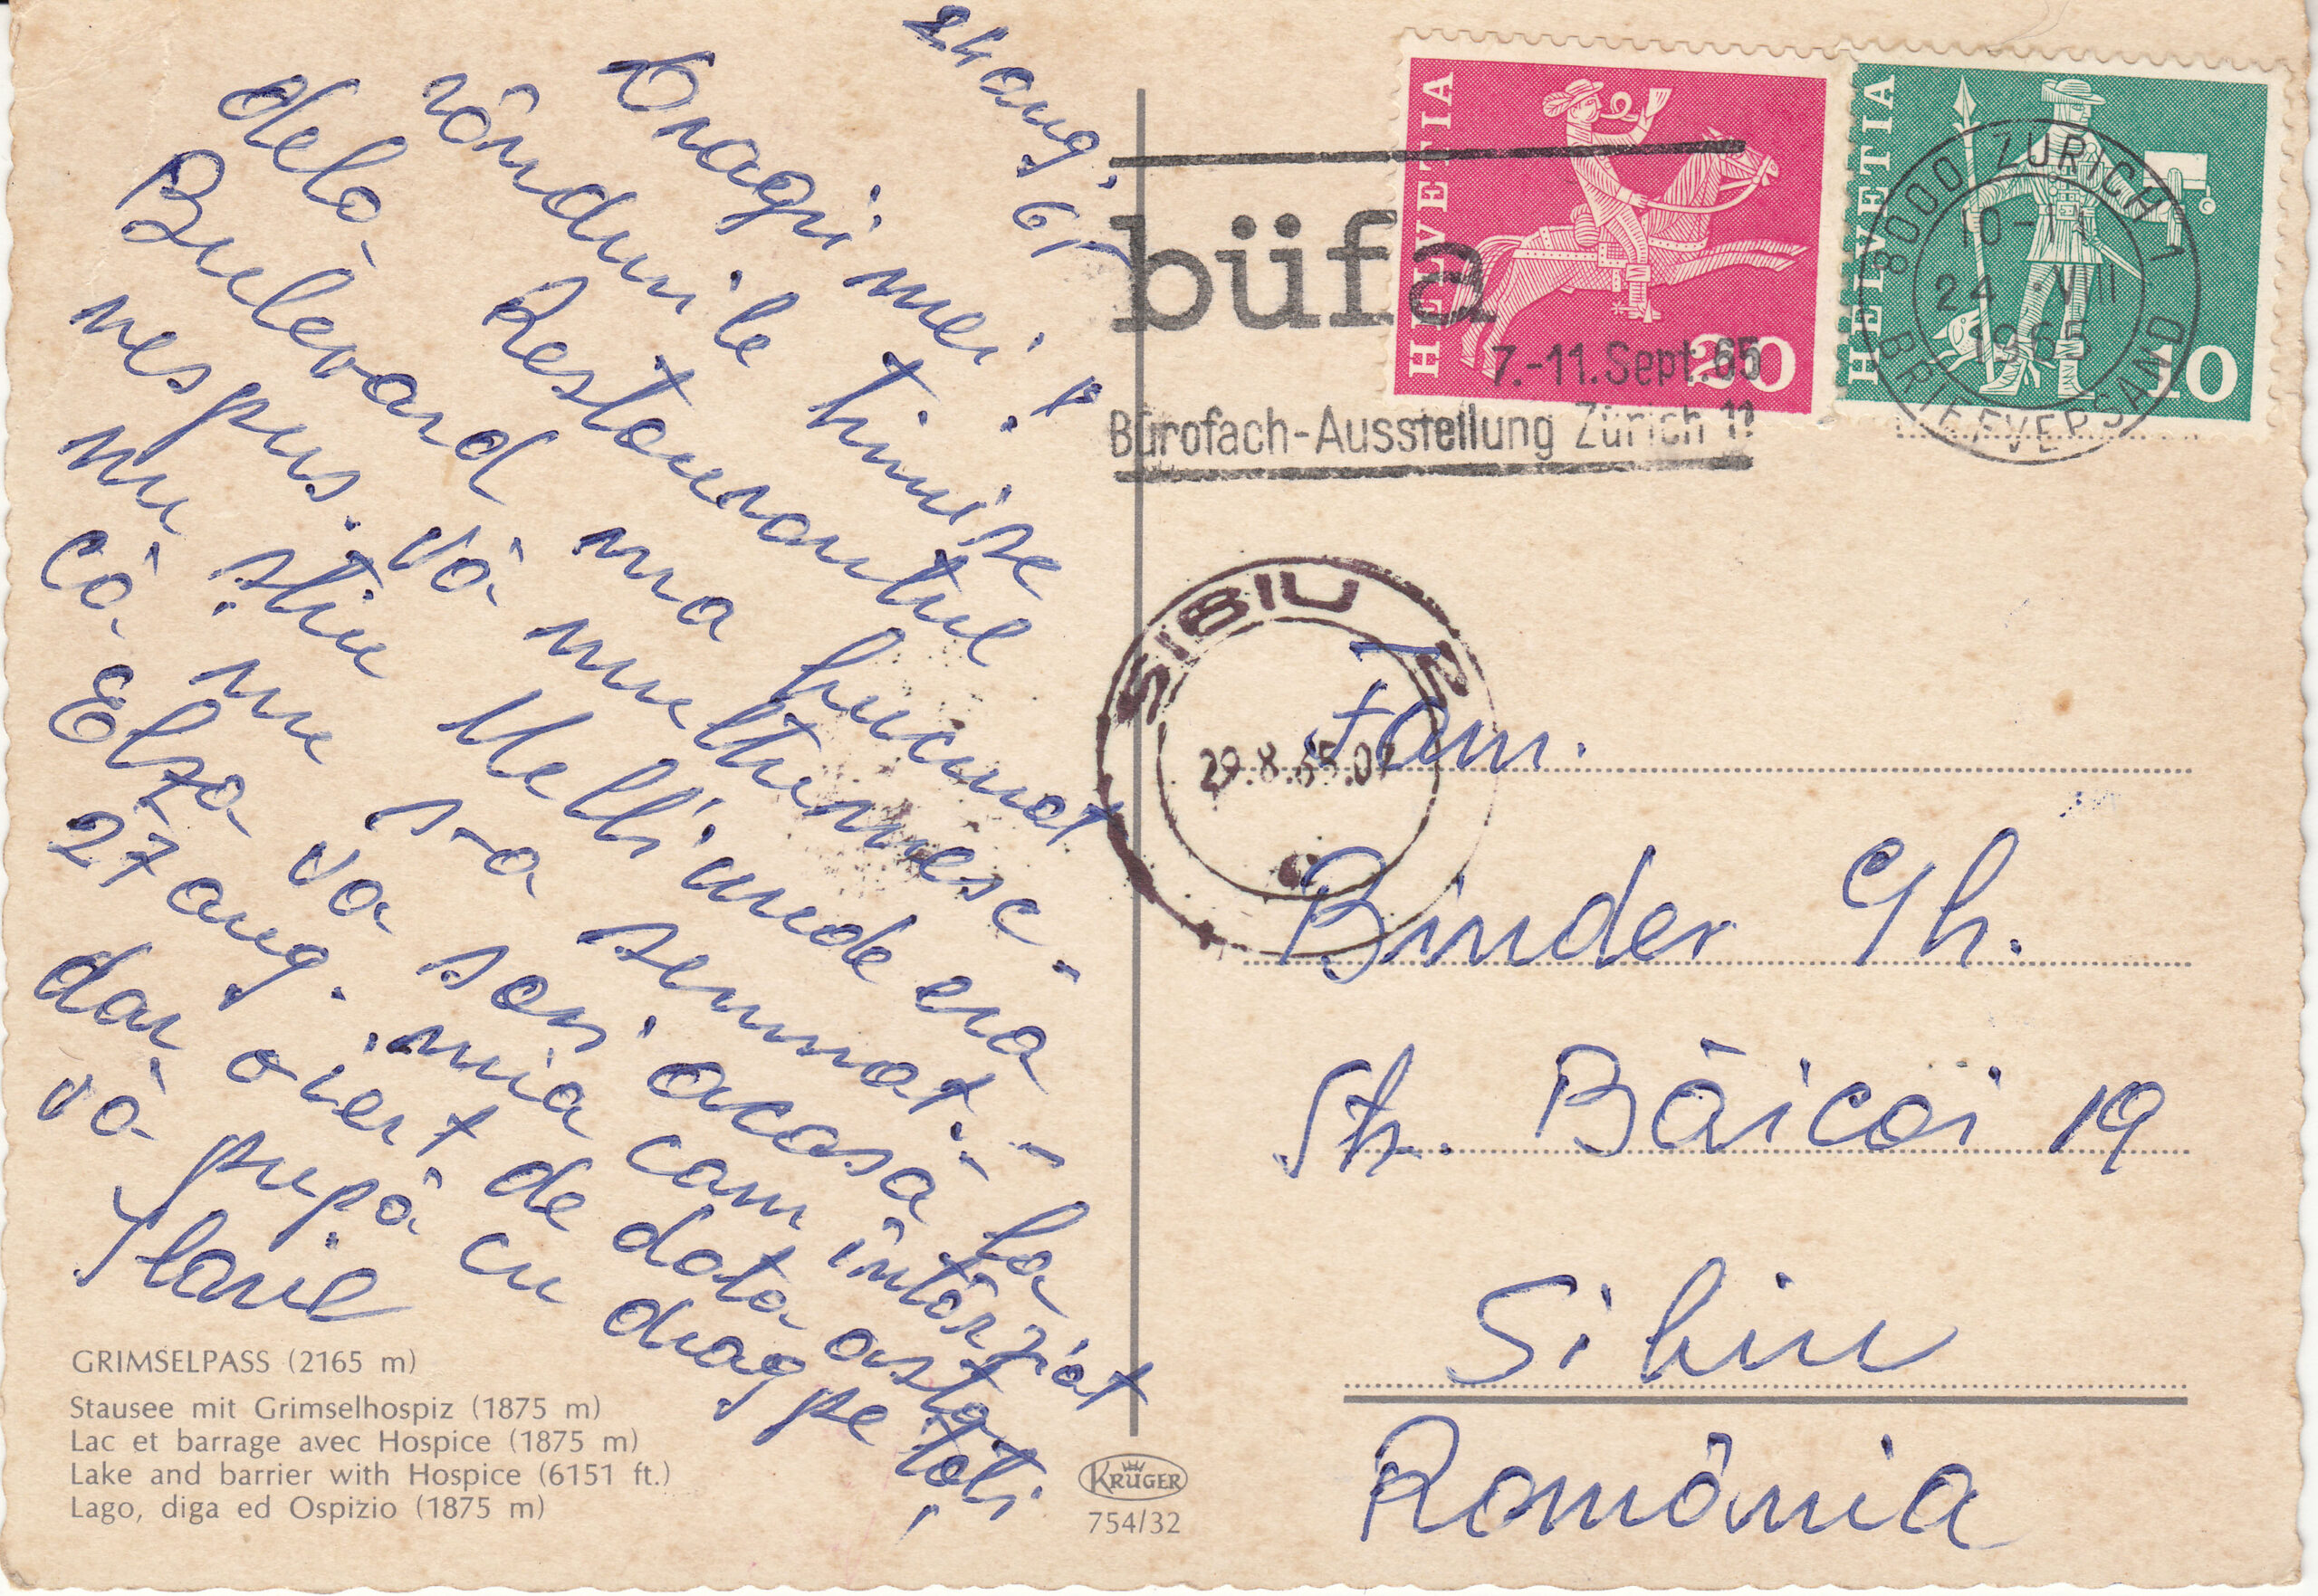 24 aug. 65
Dragii mei! Ptr
rândurile trimise
dela Restaurantul
Bulevard ma bucurat
nespus. Vă multumesc -
nu știu Melli unde era
că nu s-a semnat. -
Elza va sosi acasă la
27 aug. mia cam întârziat
dar oiert de data asta
vă pupă cu drag pe toți
HELVETIA
20
HELVETIA
10
büfa
7.-11. Sept. 65
Bürofach-Ausstellung Zürich 11
8000 ZÜRICH 1
24.VIII
1965
BRIEFVERSAND
SIBIU 2
29.8.65.07
Fam.
Binder Gh.
Str. Băicoi 19
Sibiu
România
GRIMSELPASS (2165 m)
Stausee mit Grimselhospiz (1875 m)
Lac et barrage avec Hospice (1875 m)
Lake and barrier with Hospice (6151 ft.)
Lago, diga ed Ospizio (1875 m)
KRÜGER
754/32